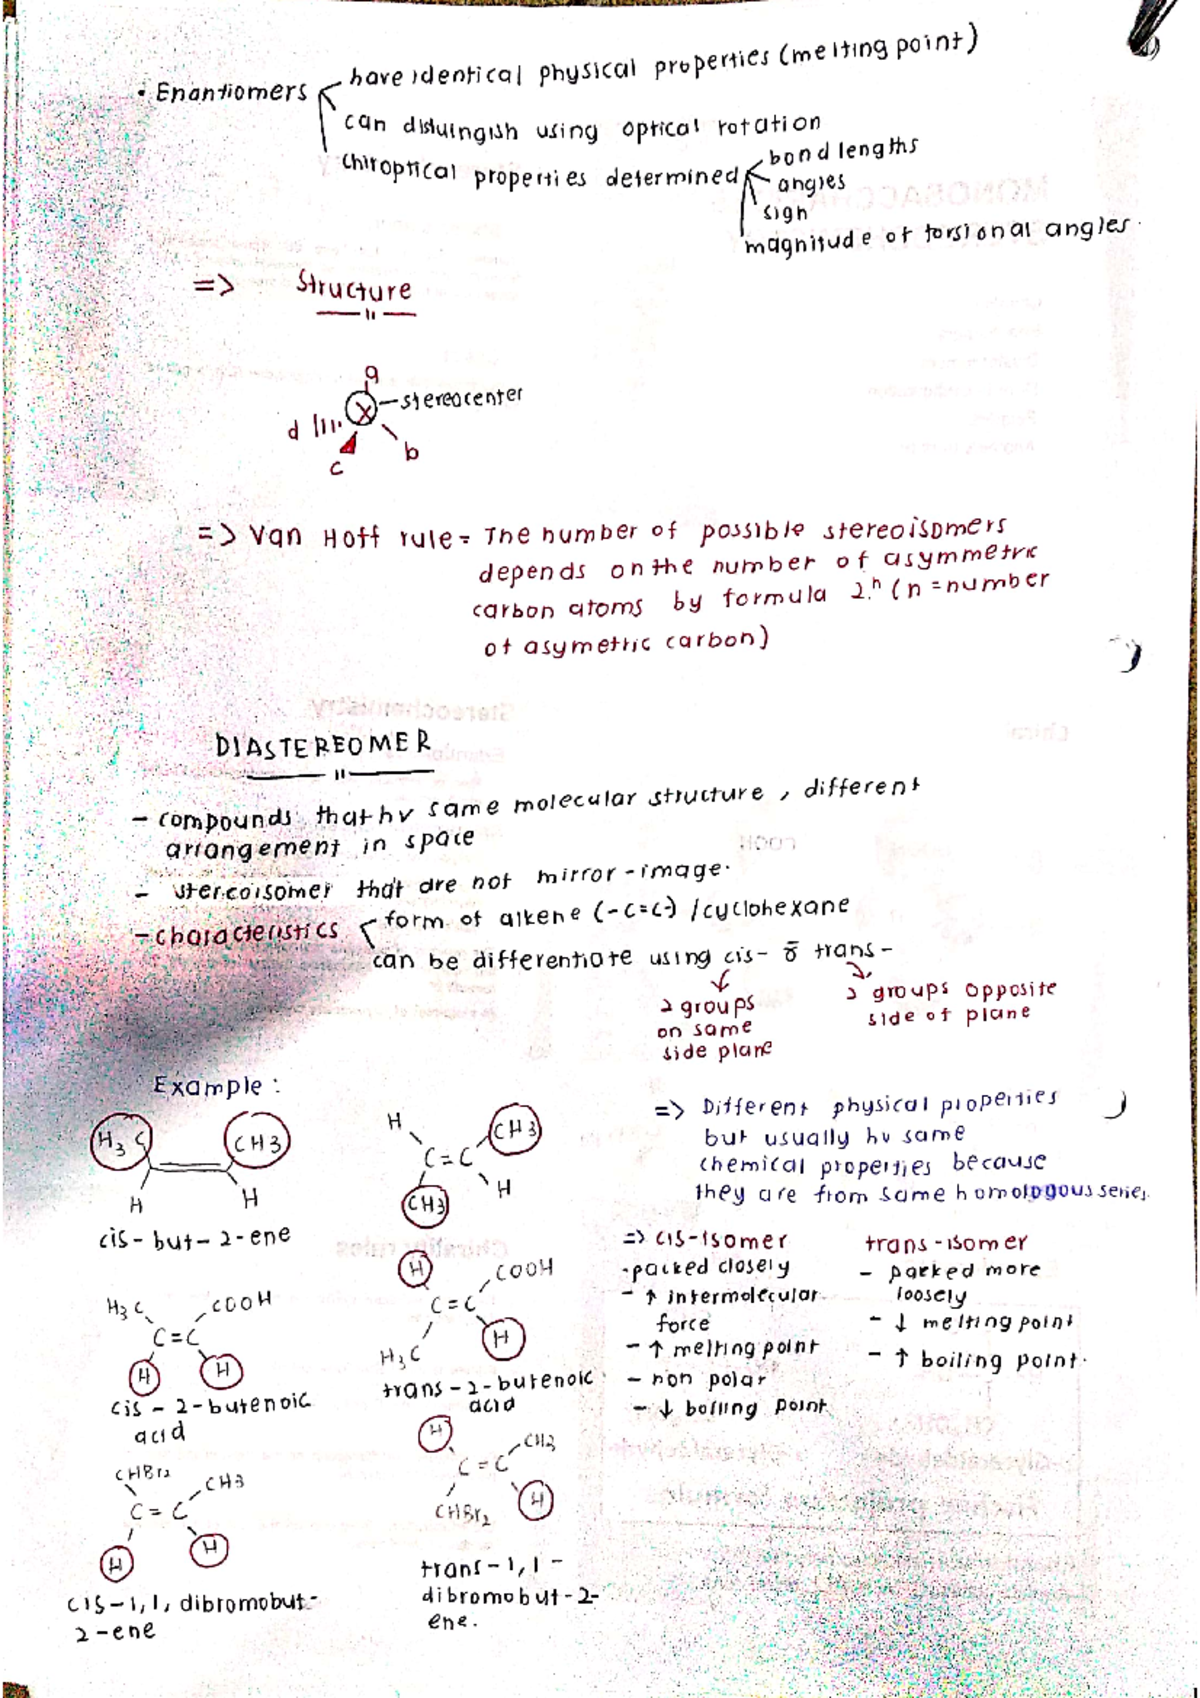 • Enantiomers
have identical physical properties (melting point)
can distuingish using optical rotation
chiroptical properties determined
bond lengths
angles
sign
magnitude of torsional angles.
=> Structure
a
stereocenter
x
d
c
b
=> Van Hoff rule = The number of possible stereoisomers
depends on the number of asymmetric
carbon atoms by formula 2.ⁿ (n = number
of asymetric carbon)
DIASTEREOMER
- compounds that hv same molecular structure, different
arrangement in space
- stereoisomer that are not mirror-image.
- characteristics
form of alkene (-C=C-) / cyclohexane
can be differentiate using cis- trans-
2 groups
on same
side plane
2 groups opposite
side of plane
Example :
H3C CH3
H H
cis-but-2-ene
H CH3
C=C
CH3 H
=> Different physical properties
but usually hv same
chemical properties because
they are from same homologous series.
H3C COOH
C=C
H H
cis-2-butenoic
acid
H COOH
C=C
H3C H
trans-2-butenoic
acid
=> cis-isomer
- packed closely
- ↑ intermolecular
force
- ↑ melting point
- non polar
- ↓ boiling point
trans-isomer
- packed more
loosely
- ↓ melting point
- ↑ boiling point.
CHBr2 CH3
C=C
H H
cis-1,1, dibromobut-
2-ene
H CH3
C=C
CHBr2 H
trans-1,1-
dibromobut-2-
ene.